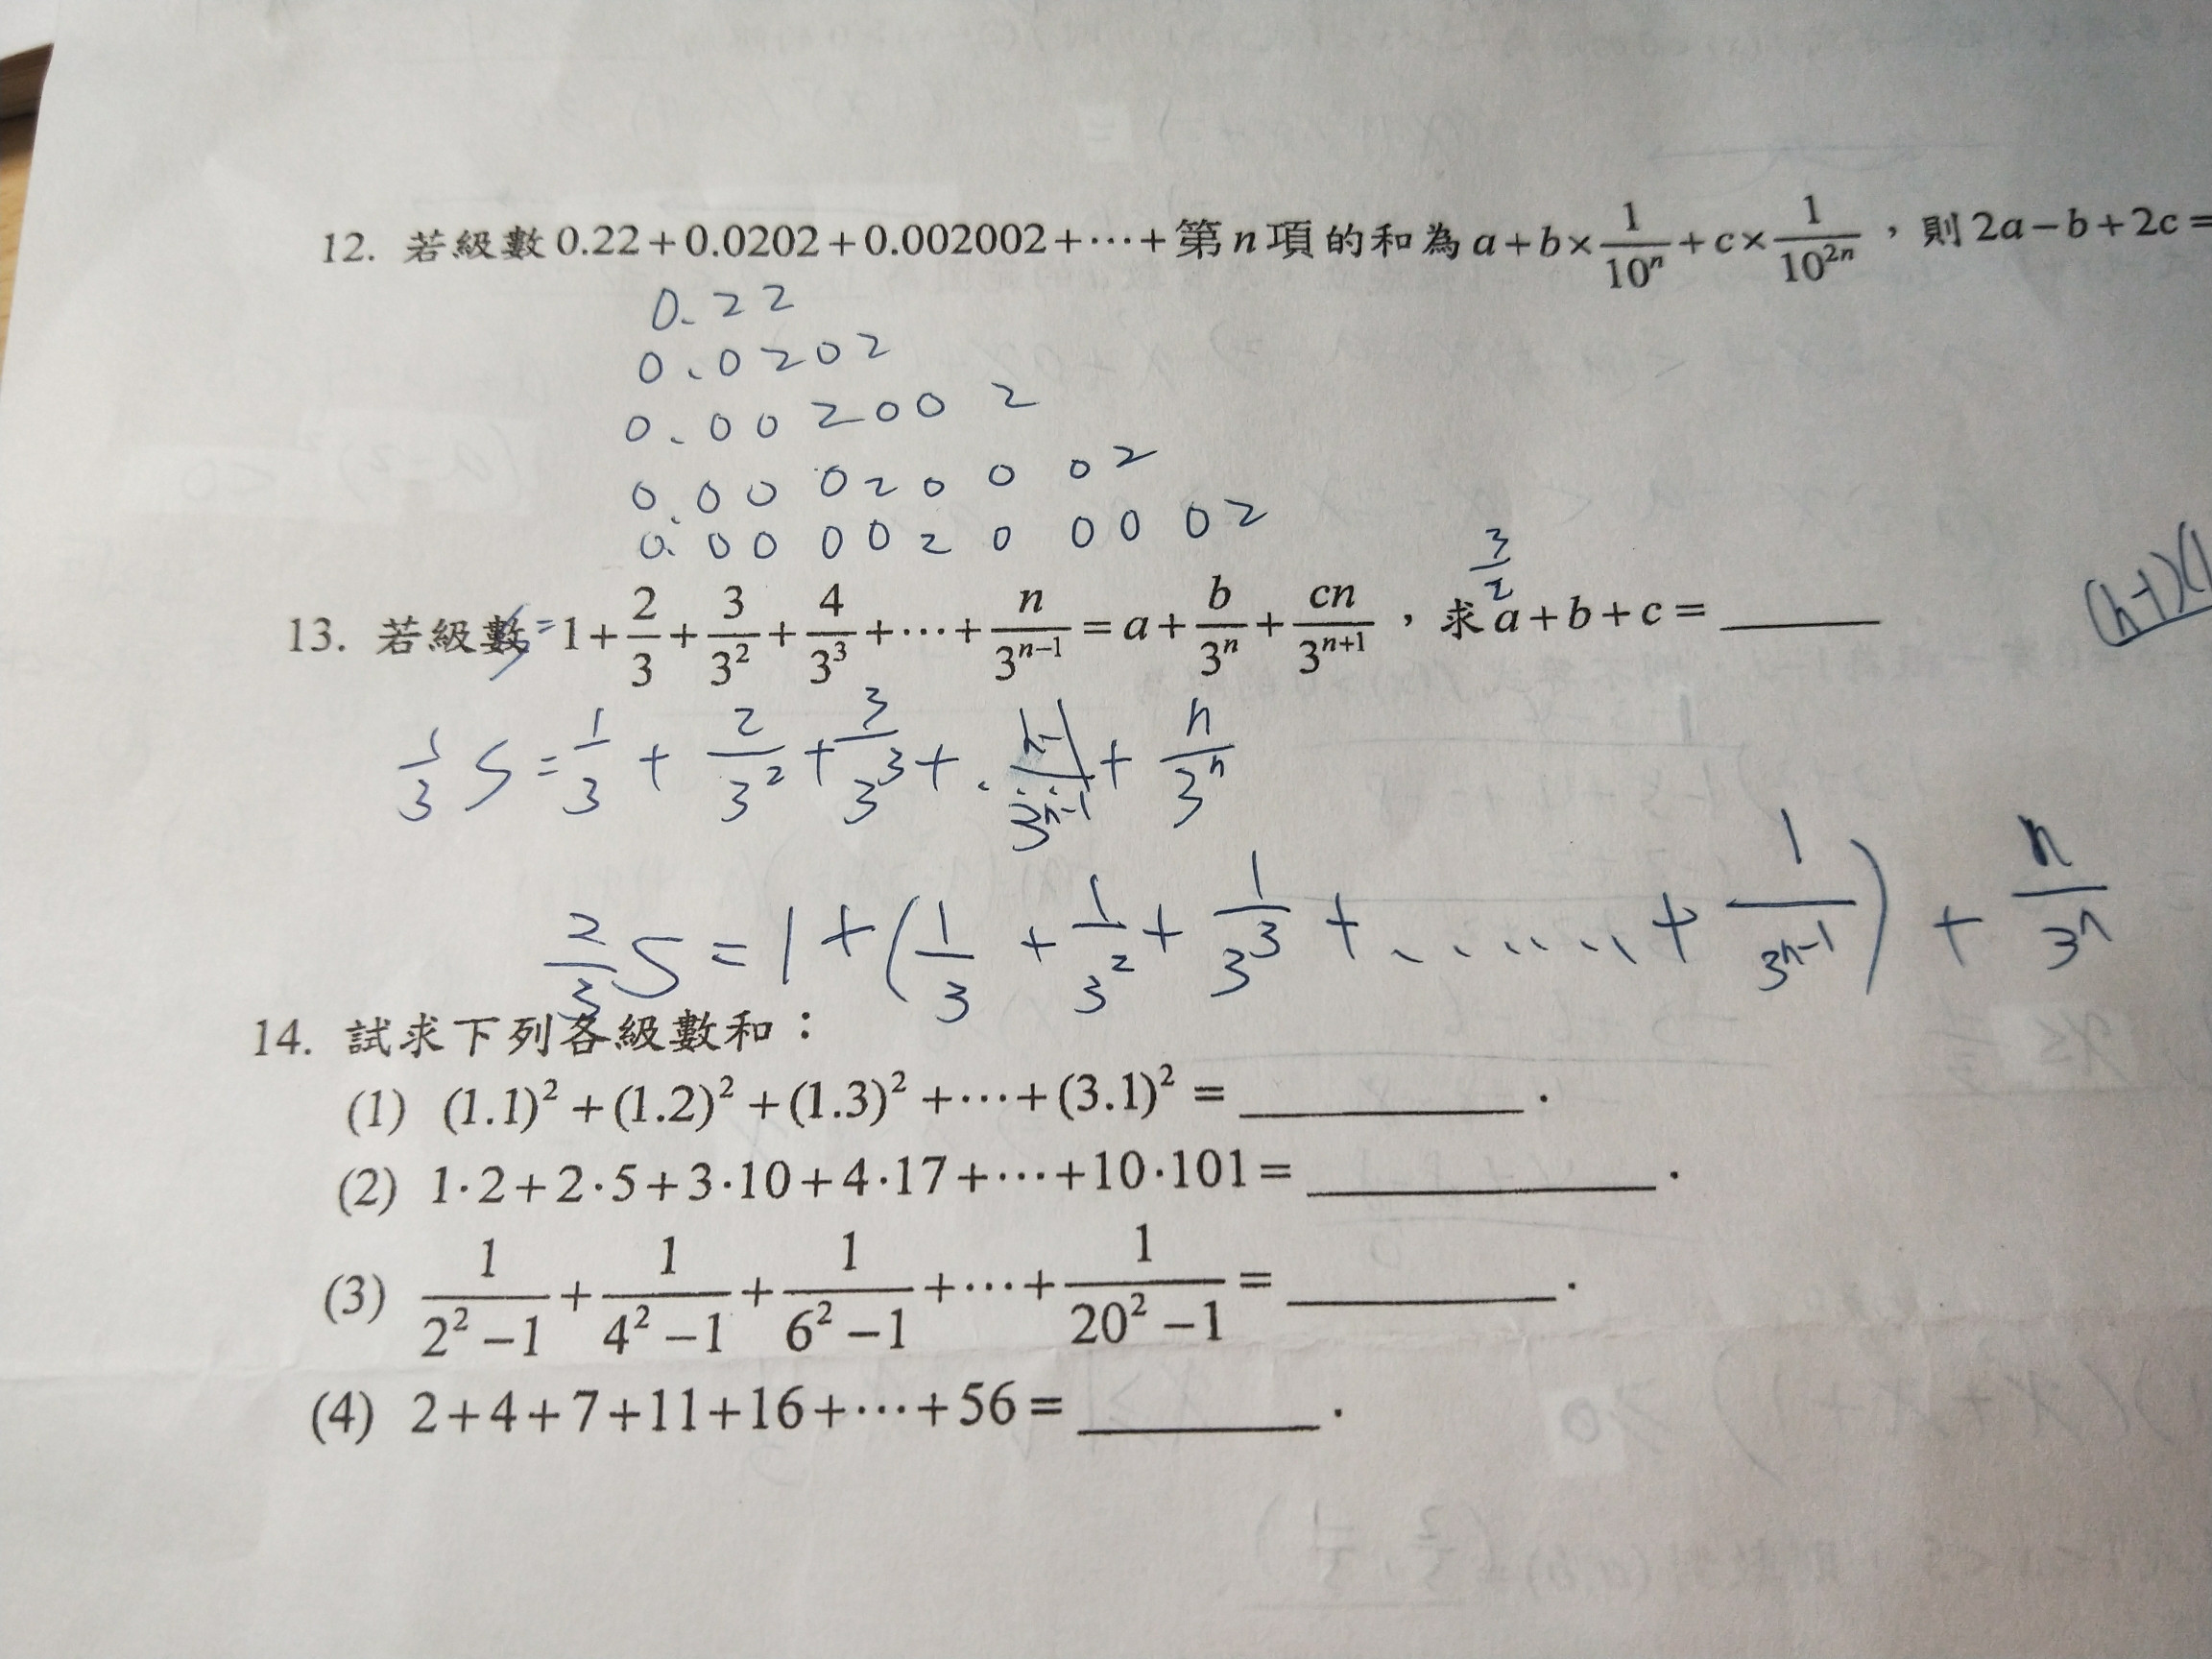 12. 若級數 0.22+0.0202+0.002002+⋯+第 n 項的和為 a+b×1/10ⁿ+c×1/10²ⁿ，則 2a−b+2c=
0.22
0.0202
0.002002
0.00020002
0.0000200002
3/2
13. 若級數 S= 1+2/3+3/3²+4/3³+⋯+n/3ⁿ⁻¹=a+b/3ⁿ+cn/3ⁿ⁺¹，求 a+b+c=______
(n-1)(1
1/3 S=1/3+2/3²+3/3³+⋯+n/3ⁿ
2/3 S=1+(1/3+1/3²+1/3³+......+1/3ⁿ⁻¹)+n/3ⁿ
14. 試求下列各級數和：
(1) (1.1)²+(1.2)²+(1.3)²+⋯+(3.1)²=__________.
(2) 1·2+2·5+3·10+4·17+⋯+10·101=____________.
(3) 1/(2²−1)+1/(4²−1)+1/(6²−1)+⋯+1/(20²−1)=__________.
(4) 2+4+7+11+16+⋯+56=________.